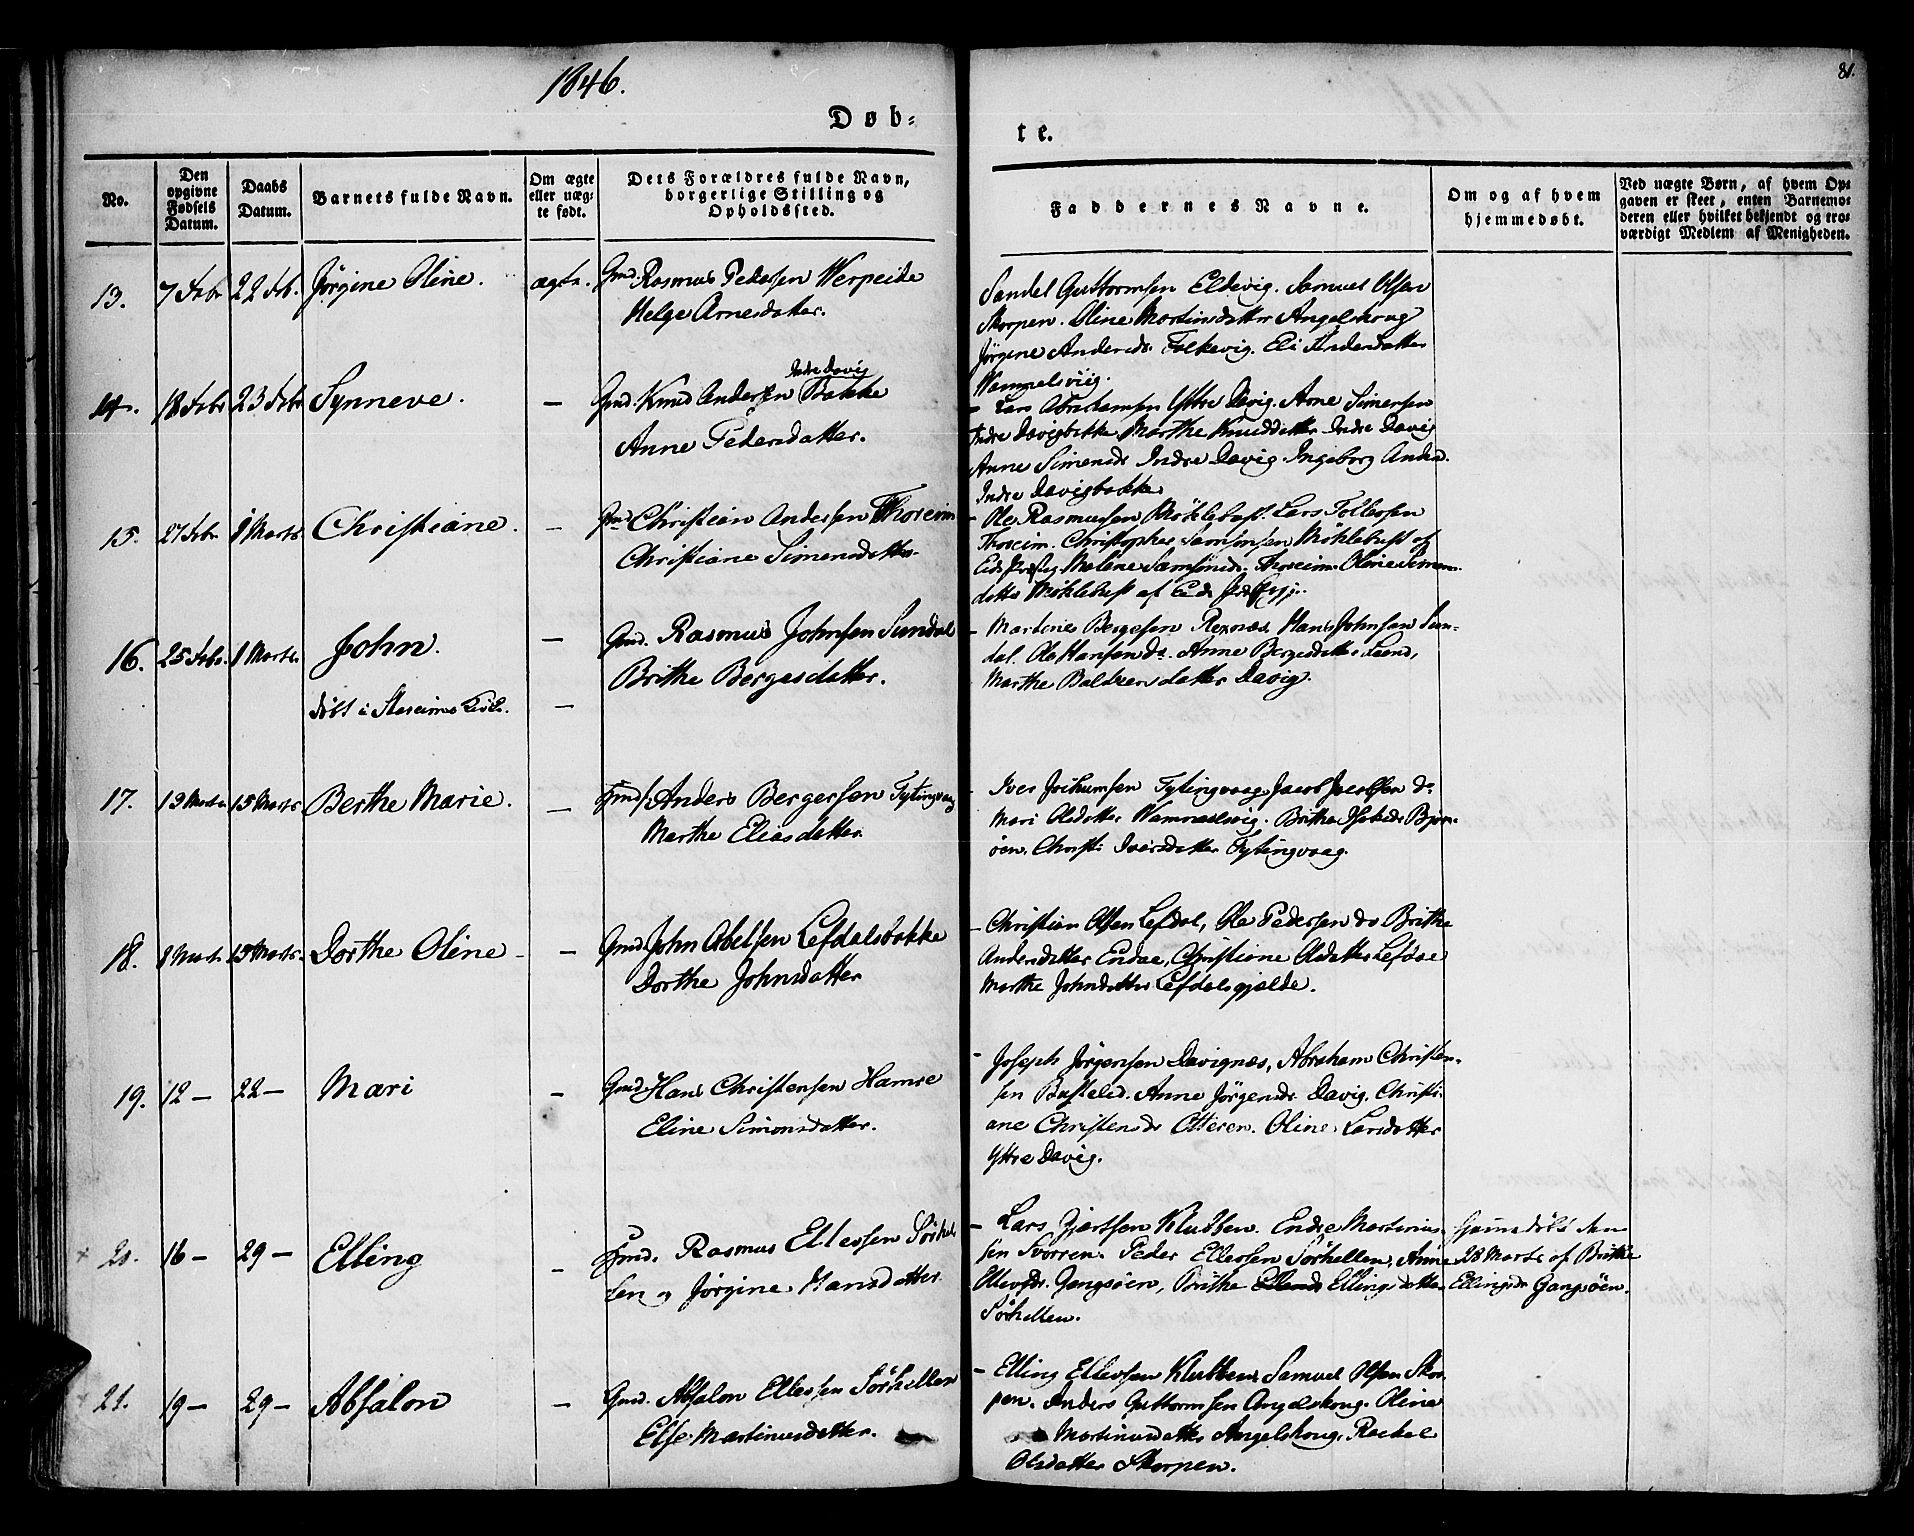 1846.
81.
Døb-
te.
No.
Den
opgivne
Fødsels
Datum.
Daabs
Datum.
Barnets fulde Navn.
Om ægte
eller uæg-
te født.
Dets Forældres fulde Navn,
borgerlige Stilling og
Opholdssted.
Faddernes Navne.
Om og af hvem
hjemmedøbt.
Ved uægte Børn, af hvem Op-
gaven er skeet, enten Barnemo-
deren eller hvilket bekjendt og tro-
værdigt Medlem af Menigheden.
13. 7 Febr 22 Feb. Jørgine Oline. ægte. Gmd. Rasmus Pedersen Werpeide
Helge Arnesdatter.
Sandel Guttormsen Eldevig. Samuel Olsen
Skorpen. Oline Martinsdatter Angelskoug
Jørgine Andersd. Folkevig. Eli Andersdatter
14. 18 Febr 23 Febr Synneve. — Gmd. Knud Andersen Indre Davig Bakke
Anne Pedersdatter.
– Lars Abrahamsen Yttre Davig. Arne Simensen
Indre Davigbakke. Marthe Knudsdatter Indre Davig
Anne Simensds Indre Davig. Ingeborg Anders.
Indre Davigbakke
15. 27 Febr 1 Marts Christiane. — Gmd Christian Andersen Thoreim
Christiane Simensdatter.
– Ole Rasmusen Möklebust. Lars Tollefsen
Thoreim. Christopher Samsonsen Möklebust af
Eids Præstg. Malene Samsonsd. Thoreim. Oline Simens
datter Möklebust af Eids
16. 25 Febr. 1 Marts John. — Gmd. Rasmus Johnsen Sundal
Brithe Bergesdatter.
døbt i Stareims Kirke. —
– Martines Bergesen Rexnæs. Hans Johnsen Sun-
dal. Ole Hansen do. Anne Bergesdatter Leend,
Marthe Baldsersdatter Davig.
17. 13 Marts 15 Marts Berthe Marie. — Gmd. Anders Bergersen Tytingvaag
Marthe Eliasdatter.
– Iver Jochumsen Tytingvaag, Jacob Jacobsen do
Mari Olsdatter Wamraalsvig. Brithe Jsaksds Bjør-
øen. Christi Iversdatter Tytingvaag.
18. 8 Marts 15 Marts Dorthe Oline – — Gmd. John Abelsen Lefdalsbakke
Dorthe Johnsdatter
– Christian Olsen Lefdal, Ole Pedersen do Brithe
Andersdatter Endal, Christiane Olsdatter Lefdal
Marthe Johnsdatter Lefdalsgjælde.
19. 12 – 22 – Mari – Gmd. Hans Christensen Hamre
Eline Simonsdatter.
– Joseph Jørgensen Davignæs, Abraham Christen-
sen Bustelid. Anne Jørgensds Davig. Christi-
ane Christensds Otteren. Oline Larsdatter
Yttre Davig.
20. 16 – 29 – Elling – Gmd. Rasmus Ellefsen Sørhel-
len og Jørgine Hansdatter
– Lars Gjertsen Klubben. Endre Martinus-
sen Svorren. Peder Ellefsen Sørhellen, Anne
Ellefsds. Gangsøen, Brithe Ellingsdatter
Sørhellen.
Hjemmedøbt den
28 Marts af Brithe
Ellingsds Gangsøen.
21. 19 – 29 – Absalon – Gmd. Absalon Ellefsen Sørhellen
Else Martinusdatter.
– Elling Ellevsen Klubben, Samuel Olsen Skor-
pen. Anders Guttormsen Angelskoug. Oline
Martinusdatter Angelskoug. Rachel
Olsdatter Skorpen.